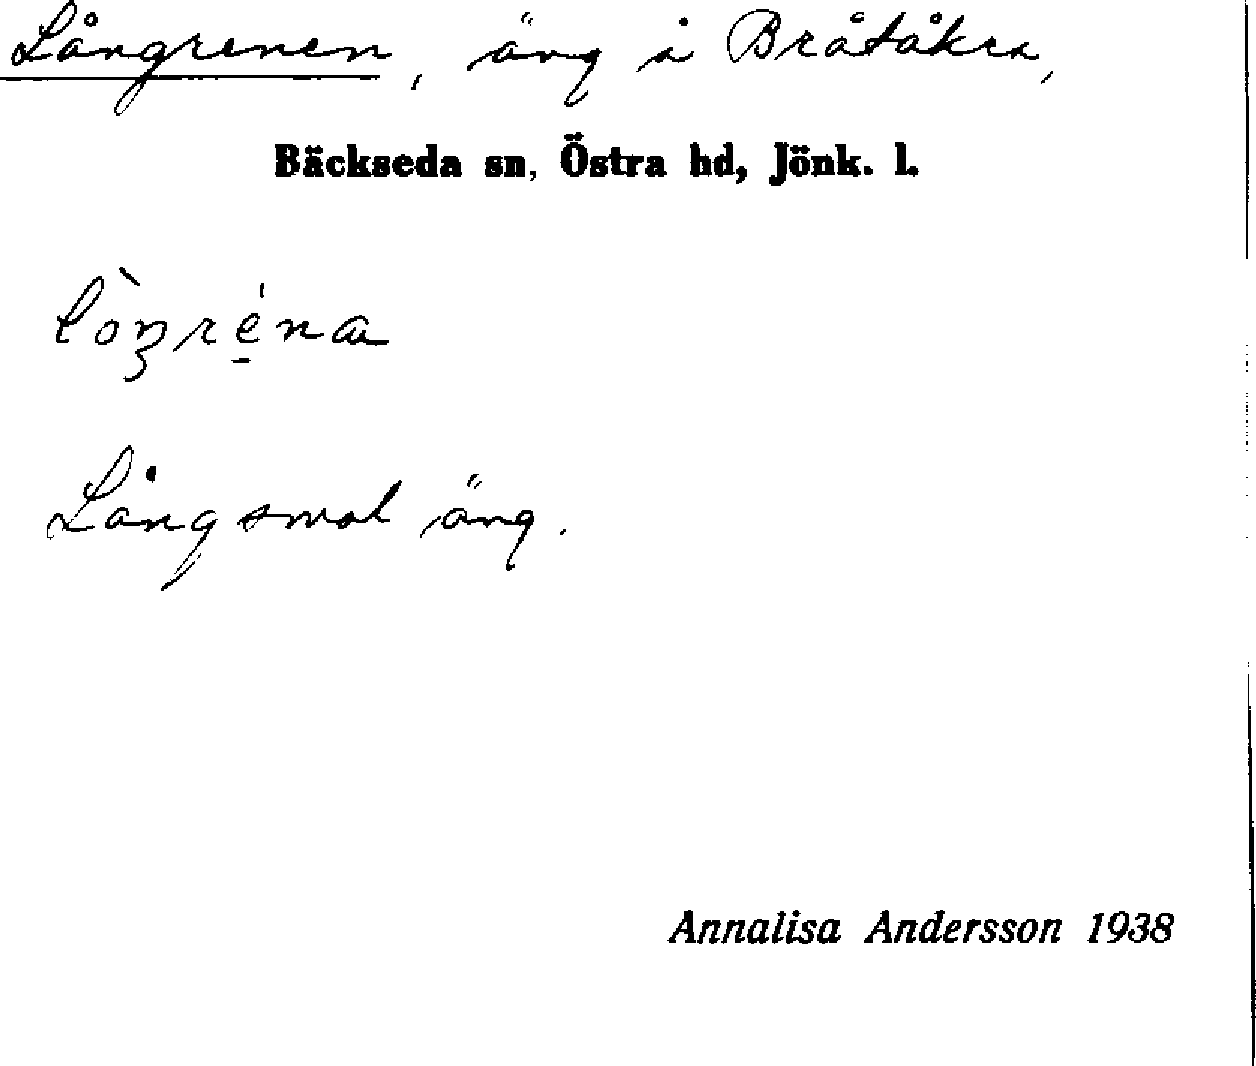 Långrenen, äng i Bråtåkra,
Bäckseda sn, Östra hd, Jönk. l.
lòŋré̠na
Långsmal äng.
Annalisa Andersson 1938